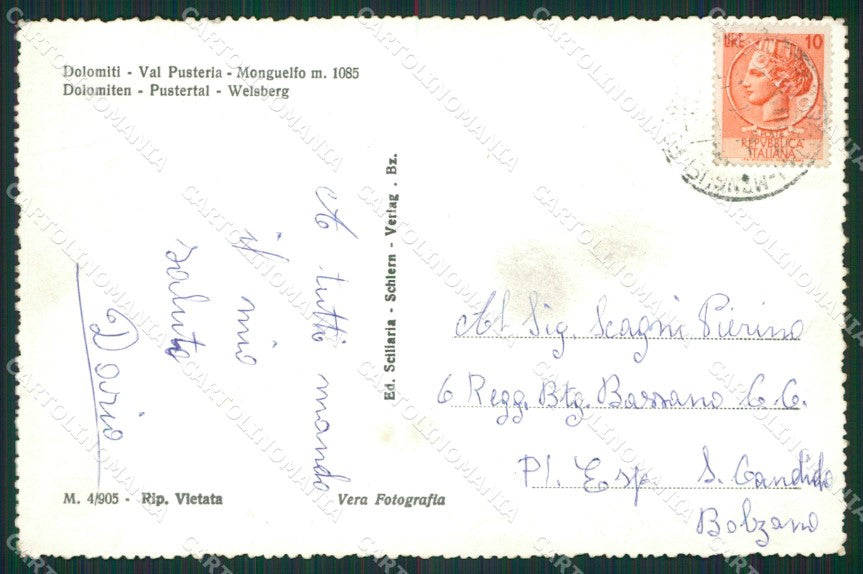 Dolomiti - Val Pusteria - Monguelfo m. 1085
Dolomiten - Pustertal - Welsberg
LIRE 10
REPVBBLICA
ITALIANA
Ed. Sciliaria - Schlern - Verlag . Bz.
A tutti mando
il mio
saluto
Dario
Al Sig. Scagni Pierino
6 Regg. Btg. Bassano C.C.
Pl. Esp. S. Candido
Bolzano
M. 4/905 - Rip. Vietata
Vera Fotografia
CARTOLINOMANIA